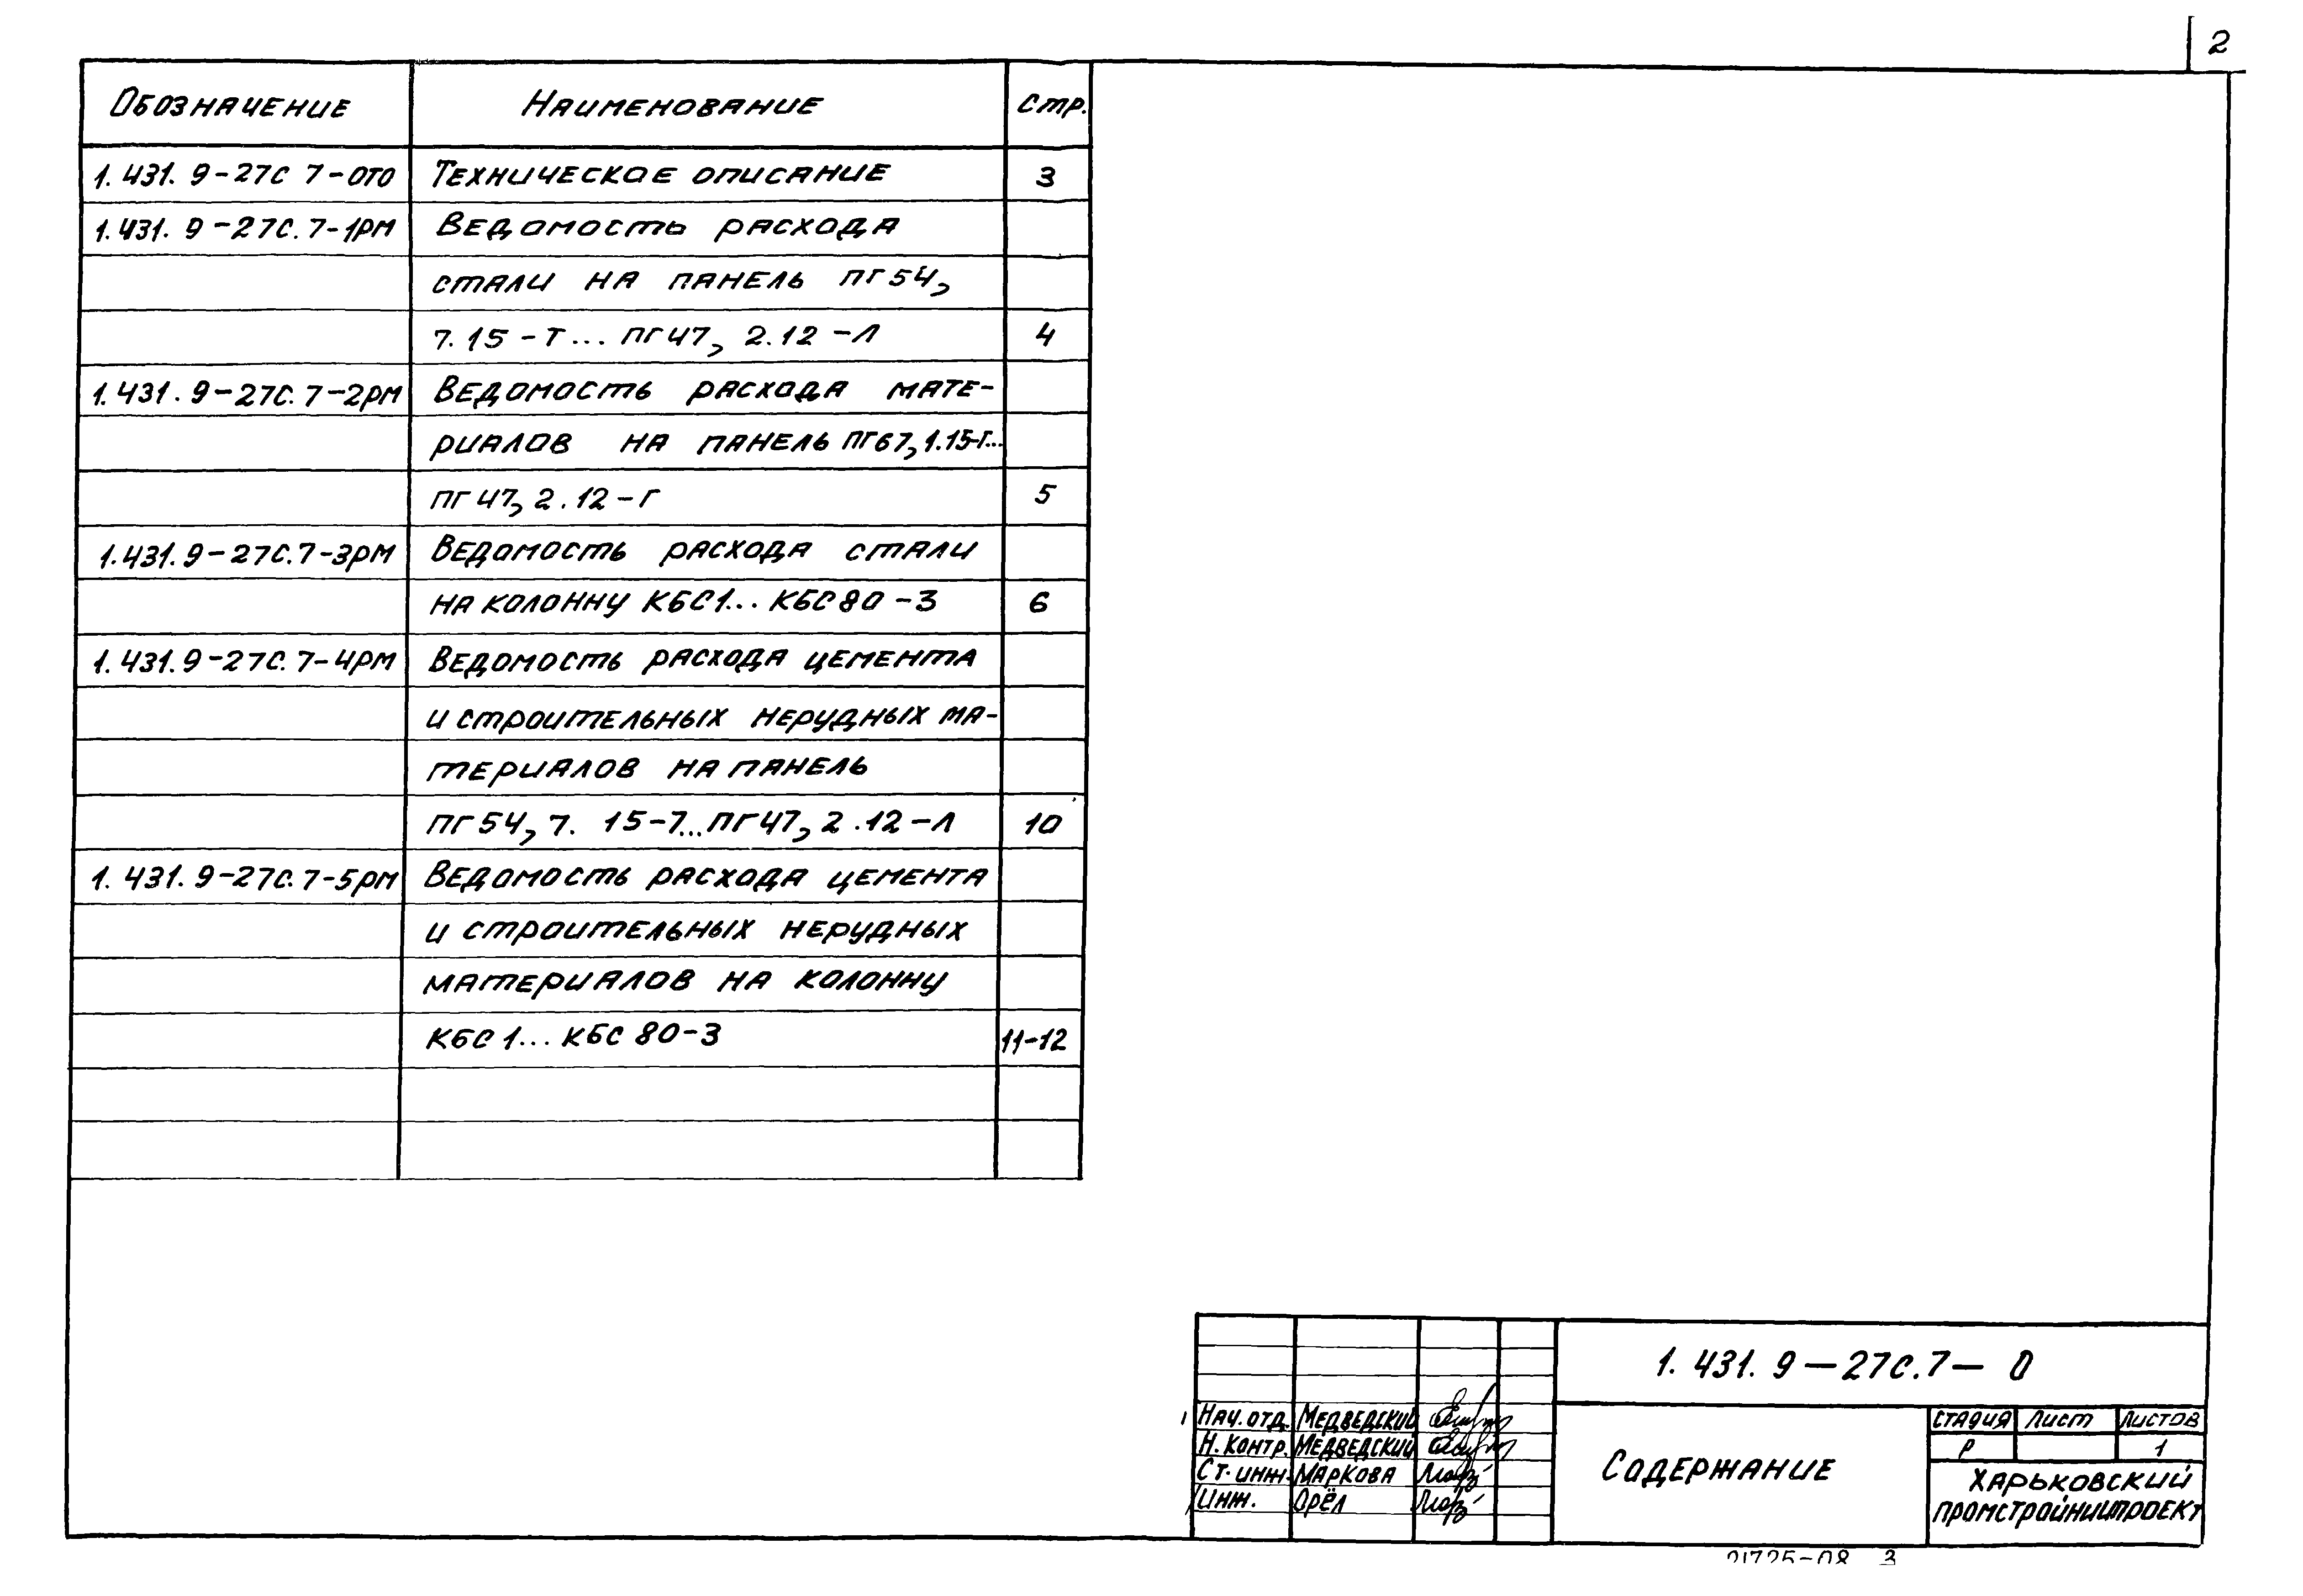 2
Обозначение Наименование Стр.
1.431.9-27С 7-ОТО Техническое описание 3
1.431.9-27С.7-1РМ Ведомость расхода
стали на панель ПГ54,
7.15-Т...ПГ47,2.12-Л 4
1.431.9-27С.7-2РМ Ведомость расхода мате-
риалов на панель ПГ67,1.15-Г...
ПГ47,2.12-Г 5
1.431.9-27С.7-3РМ Ведомость расхода стали
на колонну КБС1...КБС80-3 6
1.431.9-27С.7-4РМ Ведомость расхода цемента
и строительных нерудных ма-
териалов на панель
ПГ54,7.15-7...ПГ47,2.12-Л 10
1.431.9-27С.7-5РМ Ведомость расхода цемента
и строительных нерудных
материалов на колонну
КБС1...КБС80-3 11-12
1.431.9-27С.7-0
Нач.отд. Медведский
Н.контр. Медведский
Ст.инж. Маркова
Инж. Орёл
Содержание
Стадия Лист Листов
Р 1
Харьковский
Промстройниипроект
21725-08 3